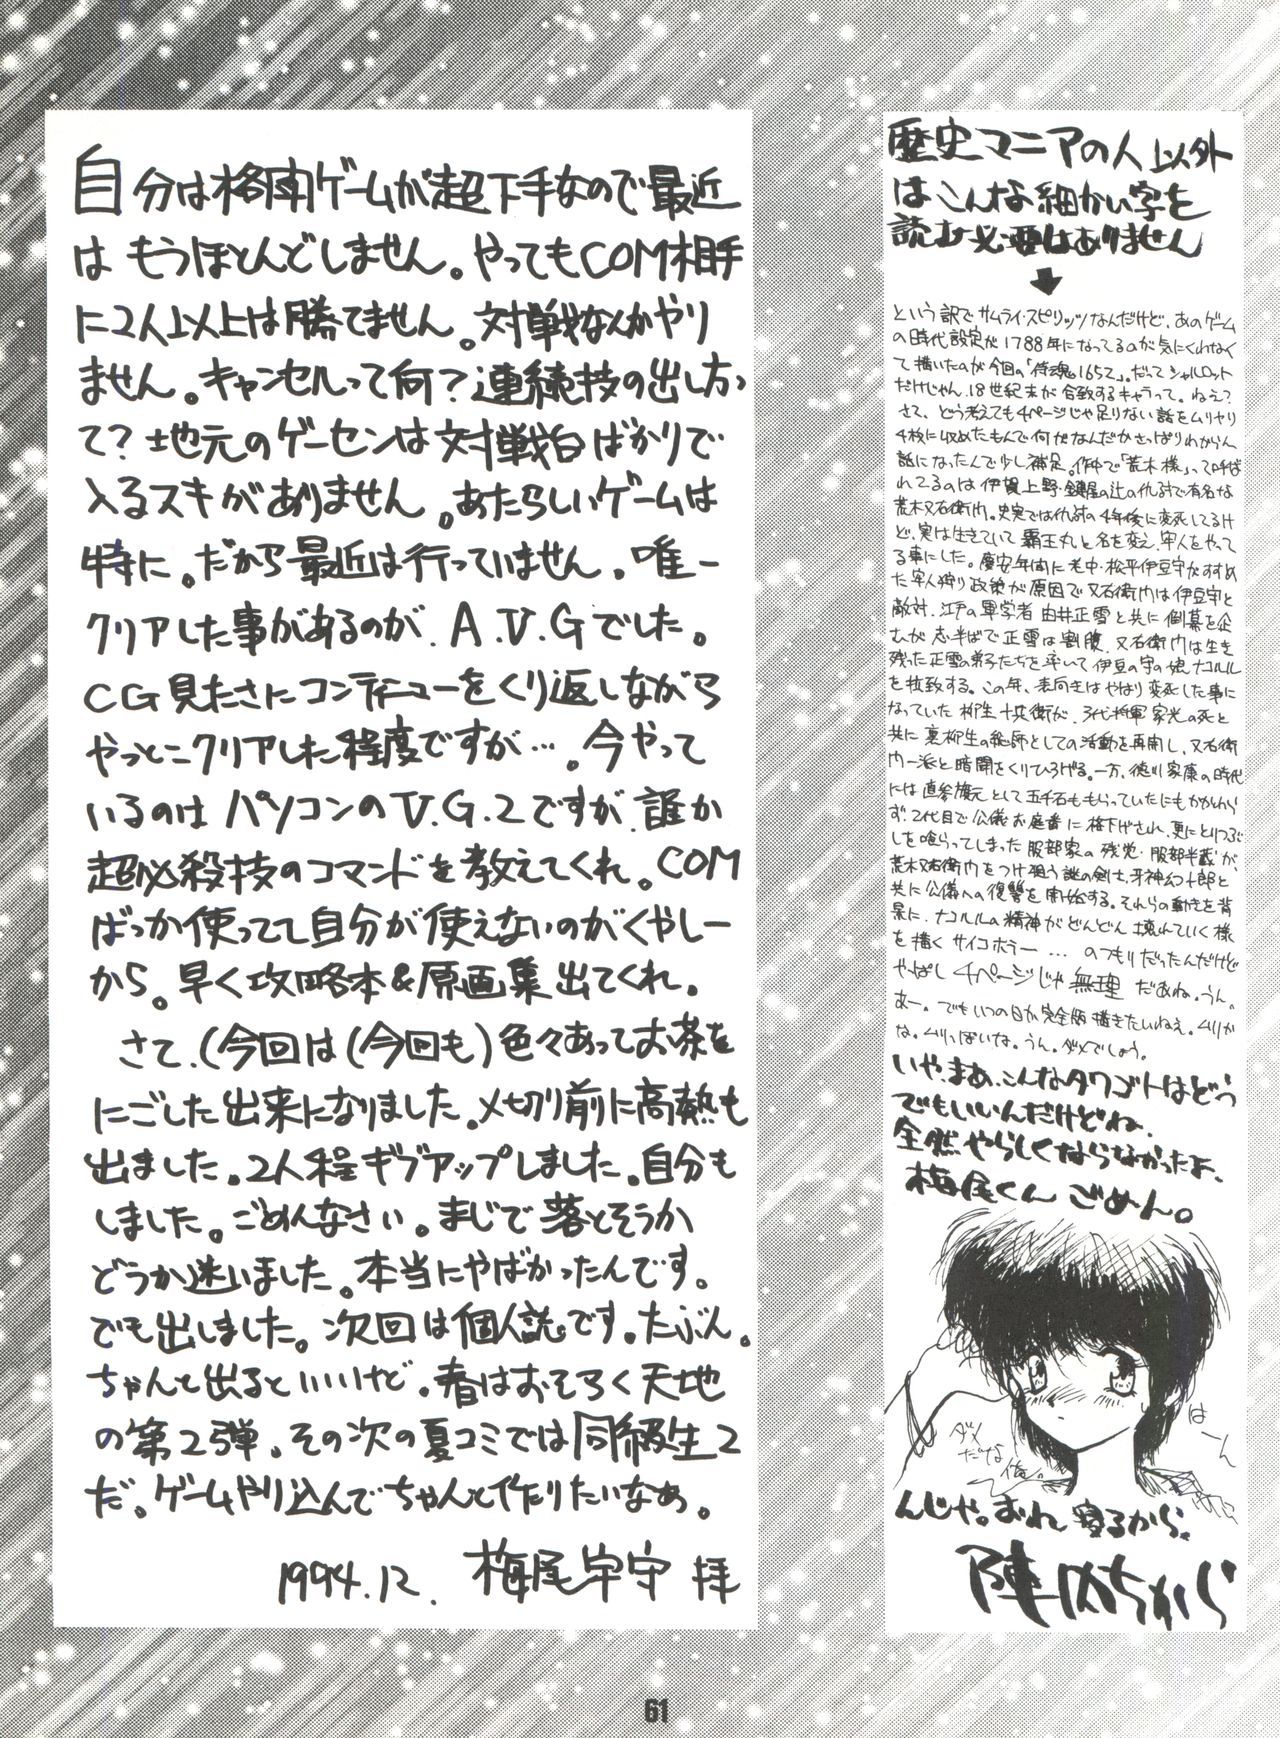 自分は格闘ゲームが超下手なので最近
は もうほとんどしません。やってもCOM相手
に2人以上は勝てません。対戦なんかやり
ません。キャンセルって何？連続技の出し方っ
て？地元のゲーセンは対戦台ばかりで
入るスキがありません。あたらしいゲームは
特に。だから最近は行っていません。唯一
クリアした事があるのが、A.V.Gでした。
CG見たさにコンティニューをくり返しながら
やっとこクリアした程度ですが…。今やって
いるのは パソコンのV.G.2ですが、誰か
超必殺技のコマンドを教えてくれ。COM
ばっか使ってて自分が使えないのがくやしー
から。早く攻略本&原画集出てくれ。
さて、(今回は(今回も)色々あってお茶を
にごした出来になりました。〆切り前に高熱も
出ました。2人程ギブアップしました。自分も
しました。ごめんなさい。まじで落とそうか
どうか迷いました。本当にやばかったんです。
でも出しました。次回は個人誌です。たぶん。
ちゃんと出るといいけど。春はおそらく天地
の第2弾、その次の夏コミでは同級生2
だ。ゲームやり込んでちゃんと作りたいなぁ。
1994.12. 梅尾宇守 拝
歴史マニアの人以外
はこんな細かい字を
読む必要はありません
という訳でサムライ・スピリッツなんだけど、あのゲーム
の時代設定が1788年になってるのが気にくわなく
て描いたのが今回の「侍魂1652」。だってシャルロット
だけじゃん、18世紀末が合致するキャラって。ねえ？
さて、どう考えても4ページじゃ足りない話をムリヤリ
4枚に収めたもんで何がなんだかさっぱりわからん
話になったんで少し補足。作中で「荒木様」って呼ば
れてるのは伊賀上野・鍵屋の辻の仇討で有名な
荒木又右衛門。史実では仇討の4年後に変死してるけ
ど、実は生きていて覇王丸と名を変え、牢人をやって
る事にした。慶安年間に老中・松平伊豆守がすすめ
た牢人狩り政策が原因で又右衛門は伊豆守と
敵対、江戸の軍学者 由井正雪と共に倒幕を企
むが志半ばで正雪は割腹、又右衛門は生き
残った正雪の弟子たちを率いて伊豆の守の娘ナコルル
を拉致する。この年、表向きはやはり変死した事に
なっていた柳生十兵衛が、3代将軍家光の死と
共に裏柳生の総帥としての活動を再開し、又右衛
門一派と暗闘をくりひろげる。一方、徳川家康の時代
には直参旗元として五千石ももらっていたにもかかわら
ず、2代目で公儀お庭番に格下げされ、更にとりつぶ
しを喰らってしまった服部家の残党・服部半蔵が、
荒木又右衛門をつけ狙う謎の剣士、牙神幻十郎と
共に公儀への復讐を開始する。それらの動きを背
景に、ナコルルの精神がどんどん壊れていく様
を描くサイコホラー…のつもりだったんだけど
やっぱし4ページじゃ無理だあね。うん。
あー。でもいつの日か完全版描きたいねえ。ムリか
な。ムリっぽいな。うん。ダメでしょう。
いや、まあ、こんなタワゴトはどう
でもいいんだけどね、
全然やらしくならなかったよ、
梅尾くん ごめん。
ダメ
だな
俺。
はーん
んじゃ。おれ 寝るから。
陣内ちから
61